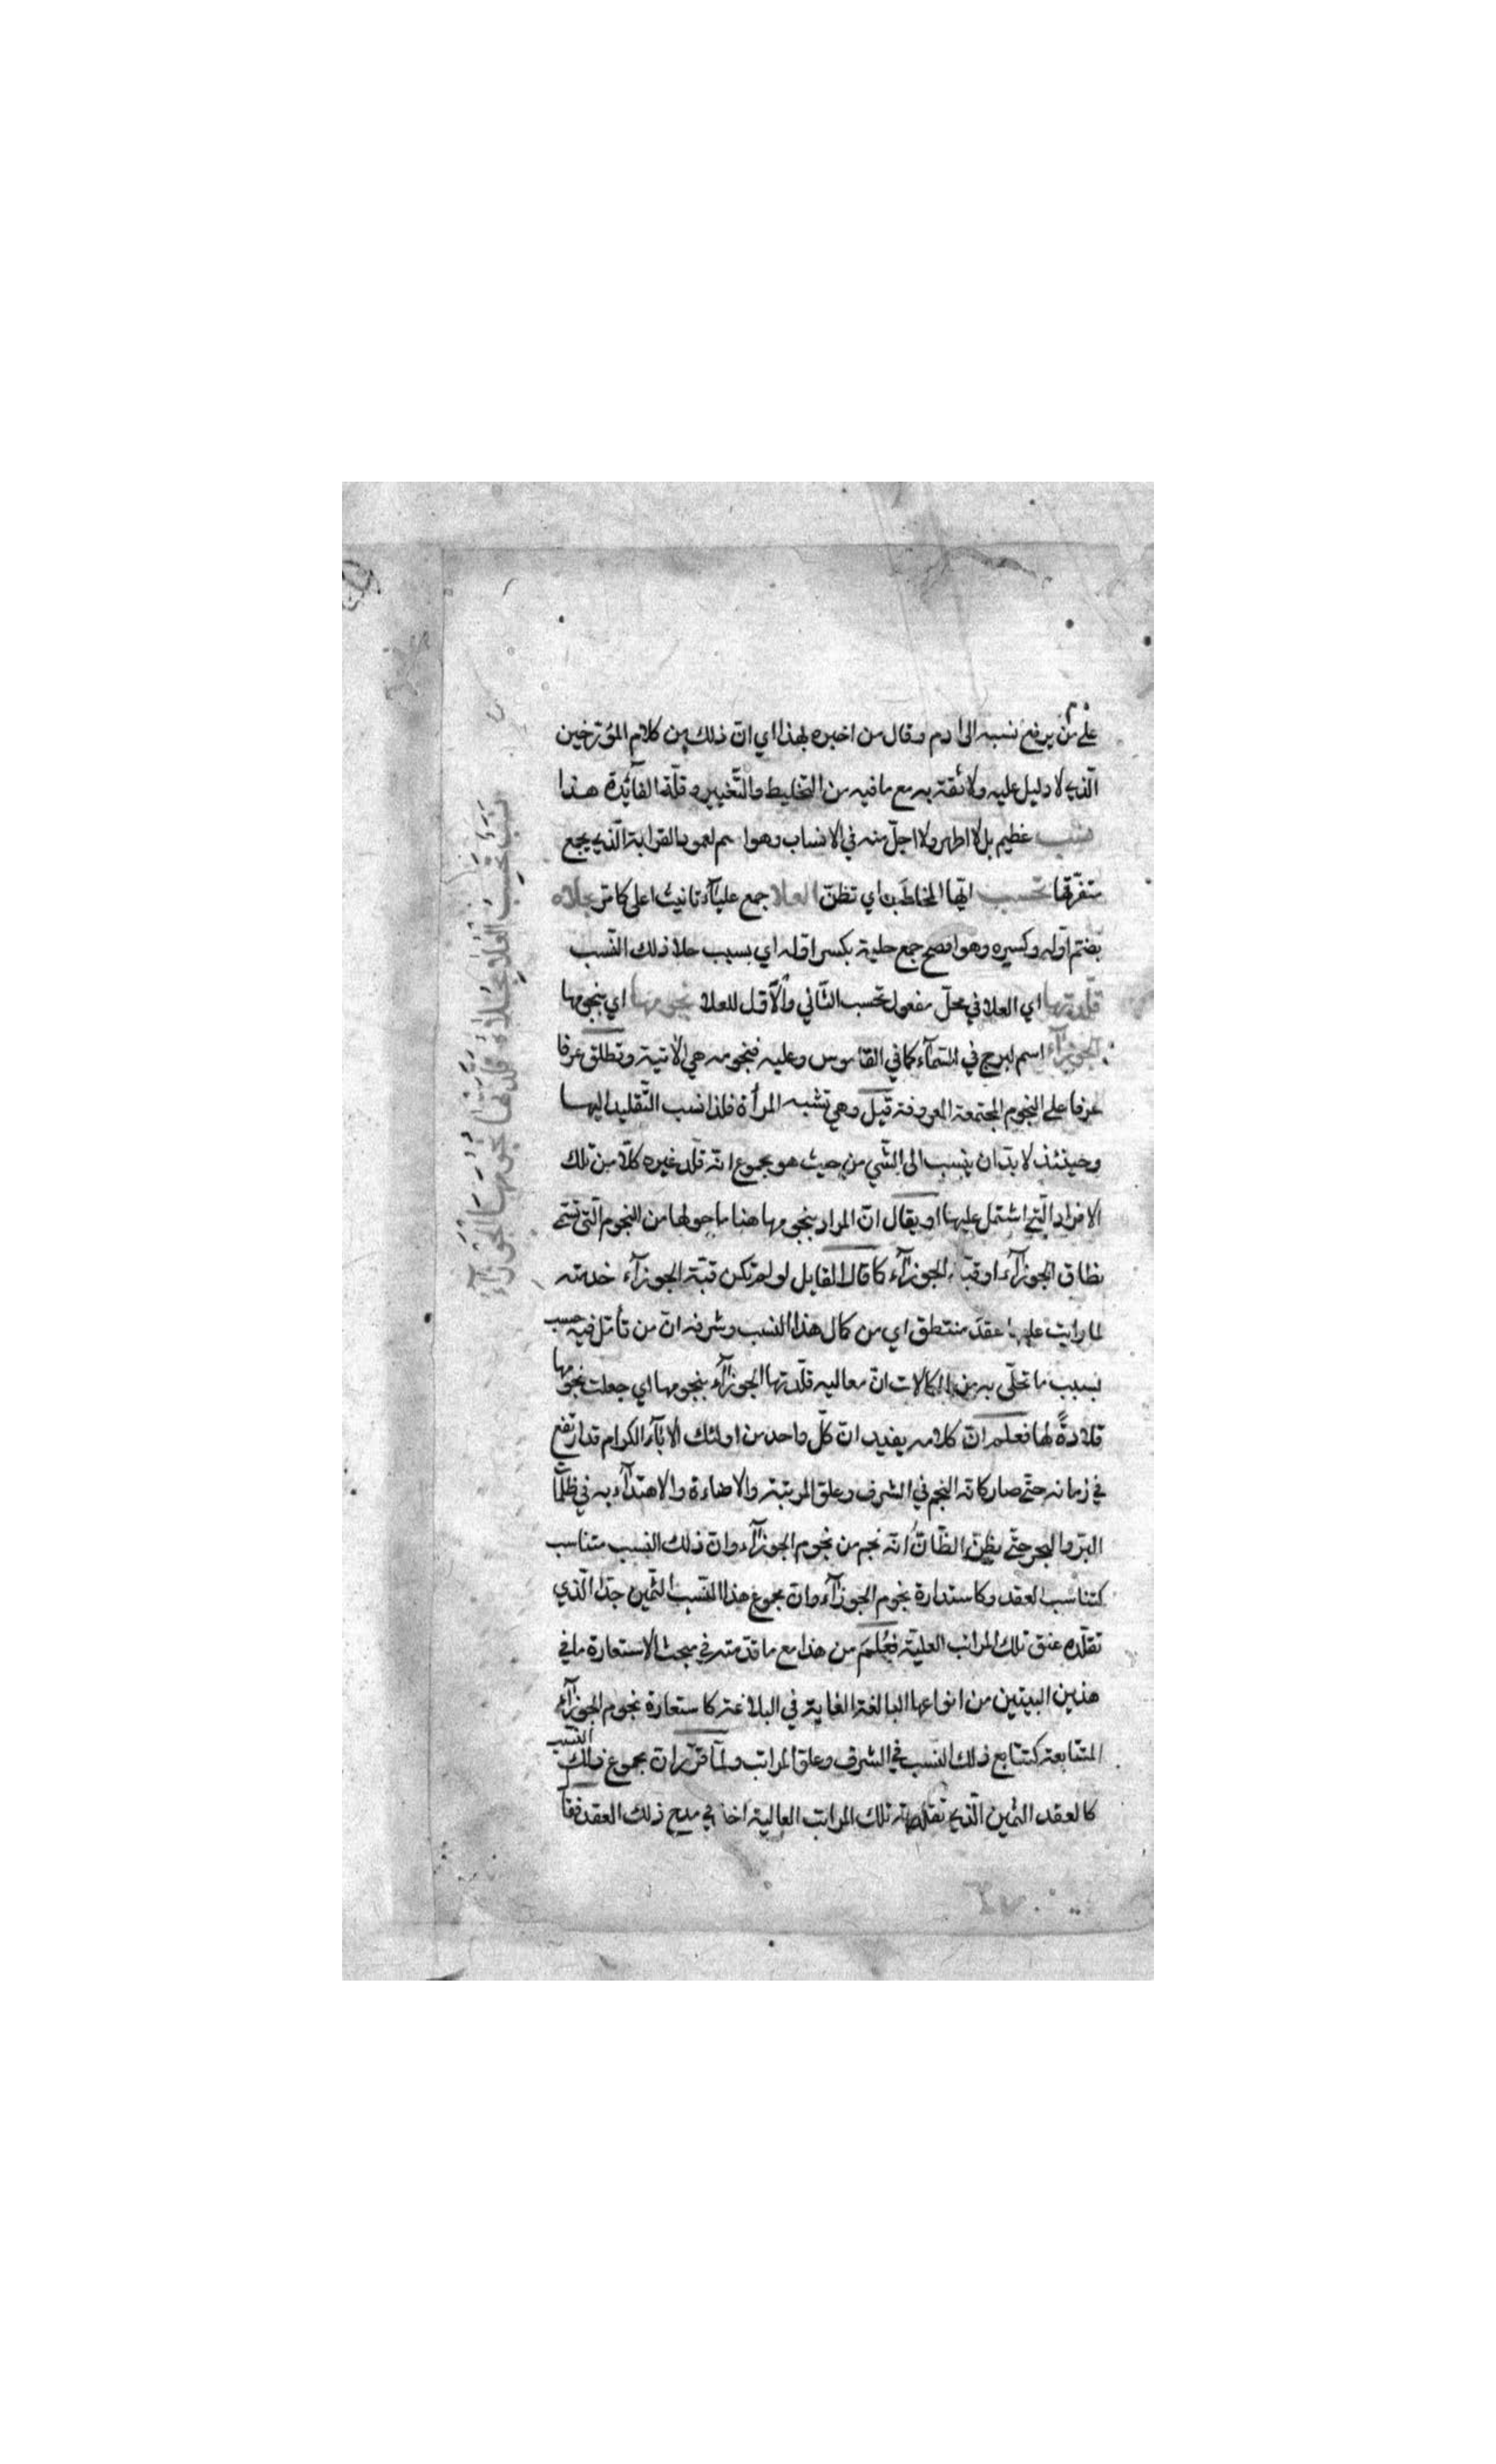 على من يرفع نسبه الى ادم وقال من اخبره بهذا اي انّ ذلك من كلام المؤرّخين
الّذي لا دليل عليه ولا ثقة به مع ما فيه من التخليط والتّغيير وقلّة الفآئدة هذا
نسب عظيم بل لا اطهر ولا اجلّ منه في الانساب وهو اسم لعمود القرابة الّذي يجمع
متفرّقها تحسب ايّها المخاطب اي تظنّ العلا جمع عليآء تانيث اعلى كما مرّ بحلاه
بضمّ اوّله وكسره وهو افصح جمع حلية بكسر اوله اي بسبب حلا ذلك النّسب
قلّدتها اي العلا في محلّ مفعول تحسب الثّاني والاوّل للعلا نجومها اي بنجومها
الجوزآء اسم لبرج في السّمآء كما في القاموس وعليه فنجومه هي الاتية وتطلق عرفا
عرفا على النجوم المجتمعة المعروفة قيل وهي تشبه المرأة فلذا نسب التّقليد اليها
وحينئذ لا بدّ ان ينسب الى الشّي من حيث هو مجموع انّه قلّد غيره كلّا من تلك
الافراد الّتي اشتمل عليها او يقال انّ المراد بنجومها هنا ما حولها من النجوم الّتي تسمّى
نطاق الجوزآء او قبّة الجوزآء كما قال القايل لو لم تكن قبّة الجوزآء خدمته
لما رايت عليها عقد منتطق اي من كمال هذا النسب وشرفه انّ من تأمّل فيه حسب
بسبب ما تحلّى به من الكمالات انّ معاليه قلّدتها الجوزآء بنجومها اي جعلت نجومها
قلادةً لها فعلم انّ كلامه يفيد انّ كلّ واحد من اولئك الابآء الكرام قد ارتفع
في زمانه حتّى صار كانّه النجم في الشرف وعلوّ المرتبة والاضاءة والاهتدآء به في ظلمآ
البرّ والبحر حتّى يظنّ الظّانّ انّه نجم من نجوم الجوزآء وانّ ذلك النسب متناسب
كتناسب لعقد وكاستدارة نجوم الجوزآء وانّ مجموع هذا النّسب الثّمين جدّا الّذي
تقلّده عنق تلك المراتب العليّة فعُلِمَ من هذا مع ما قدّمته في مبحث الاستعارة ما في
هذين البيتين من انواعها البالغة الغاية في البلاغة كاستعارة نجوم الجوزآء
المتتابعة كتتابع ذلك النسب في الشرف وعلوّ المراتب ولمّا قرّر انّ مجموع ذلك النّسب
كالعقد الثمين الّذي تقلّدته تلك المراتب العالية اخذ في مدح ذلك العقد فقا
نَسَبٌ تَحْسِبُ العُلَا بِحُلَاهُ قَلَّدَتْهَا نُجُومَهَا الجَوْزَآءُ